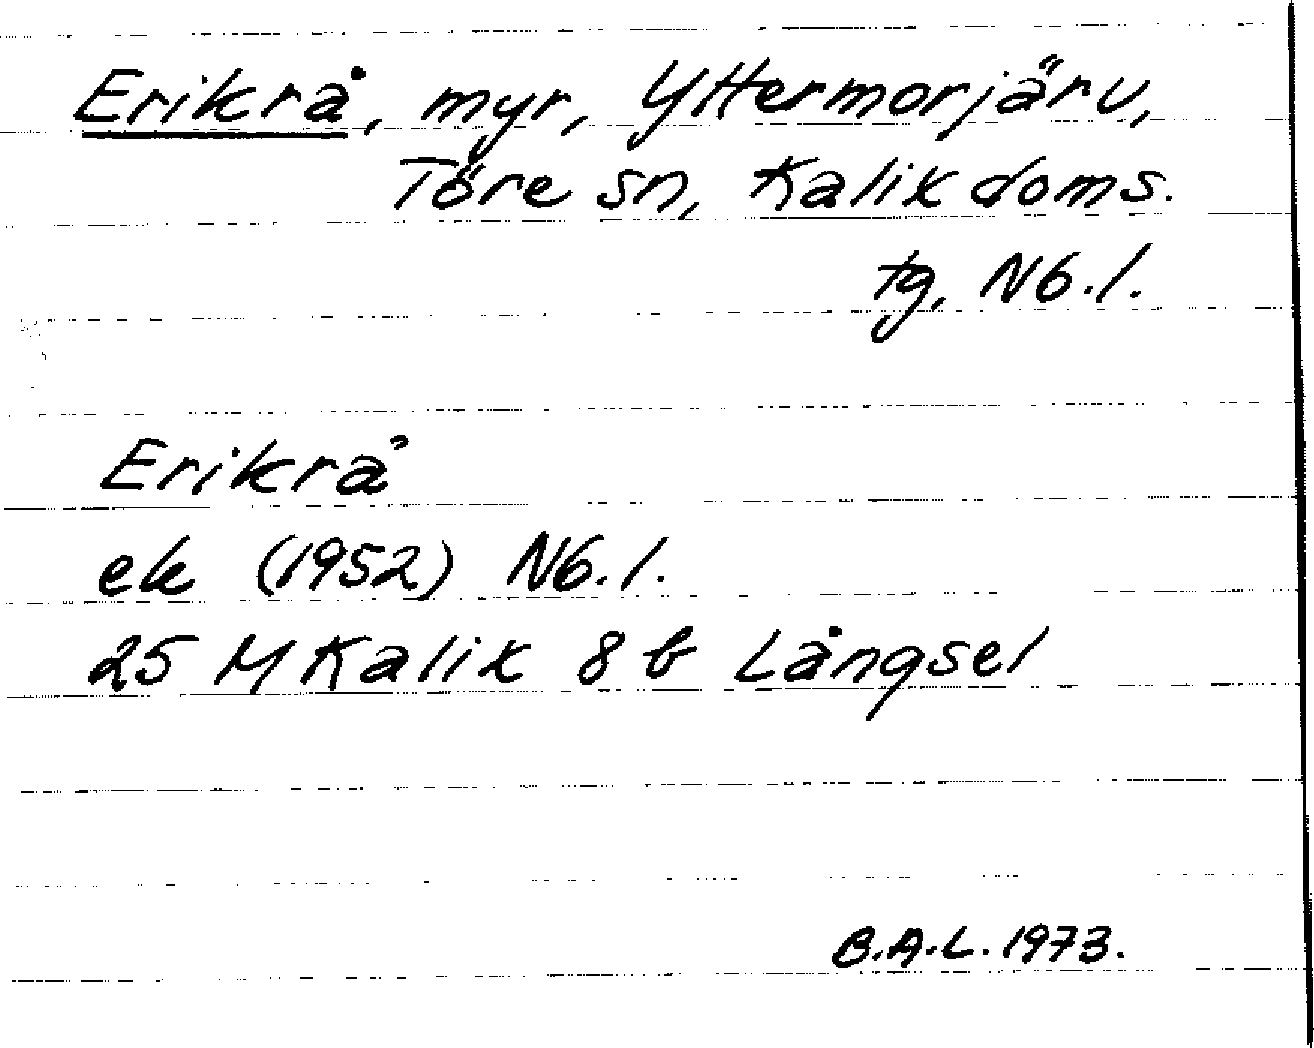 Erikrå, myr, Yttermorjärv,
Töre sn, Kalix doms.
tg, Nb.l.
Erikrå
ek (1952) Nb.l.
25 M Kalix 8 b Långsel
B.A.L. 1973.